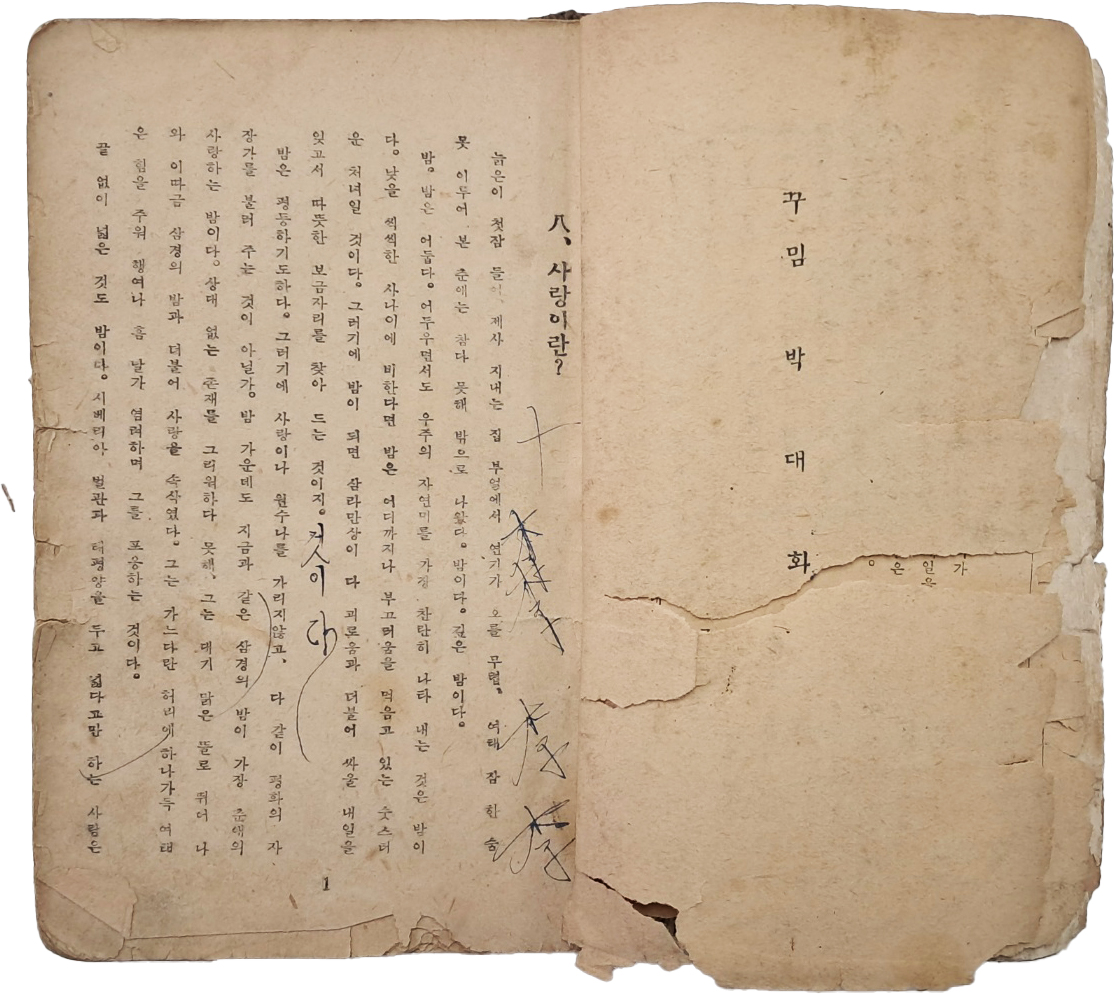 꾸밈 박대화
가
일
은
八、사랑이란?
늙은이 첫잠 들어、제사 지내는 집 부엌에서 연기가 오를 무렵、여태 잠 한 숨
못 이두어 본 춘애는 참다 못해 밖으로 나왔다。밤이다。깊은 밤이다。
밤。밤은 어둡다。어두우면서도 우주의 자연미를 가장 찬란히 나타 내는 것은 밤이
다。낮을 씩씩한 사나이에 비한다면 밤은 어디까지나 부끄러움을 먹음고 있는 숫스러
운 처녀일 것이다。그러기에 밤이 되면 삼라만상이 다 괴로움과 더불어 싸울 내일을
잊고서 따뜻한 보금자리를 찾아 드는 것이지。것이다
밤은 평등하기도하다。그러기에 사랑이나 원수나를 가리지않고、다 같이 평화의 자
장가를 불러 주는 것이 아닐가。밤 가운데도 지금과 같은 삼경의 밤이 가장 춘애의
사랑하는 밤이다。상대 없는 존재를 그리워하다 못해、그는 대기 맑은 뜰로 뛰어 나
와 이따금 삼경의 밤과 더불어 사랑을 속삭였다。그는 가느다란 허리에 하나가득 여태
은 힘을 주워 행여나 흠 날가 염려하며 그를 포옹하는 것이다。
끝 없이 넓은 것도 밤이다。시베리아 벌판과 태평양을 두고 넓다고만 하는 사람은
1